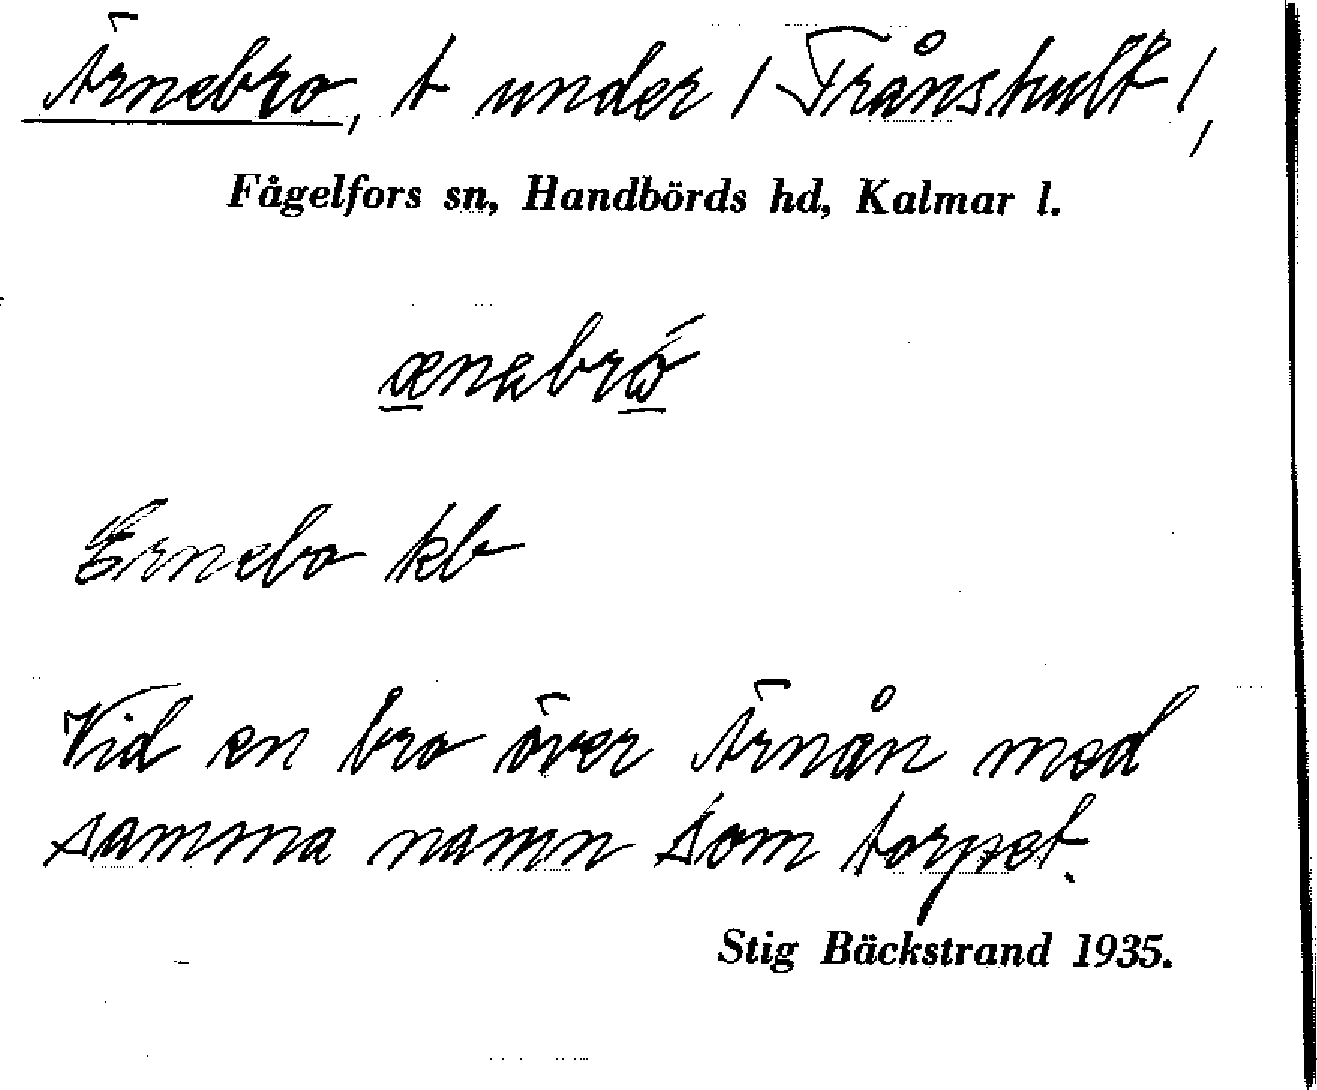 Ärnebro, t under / Trånshult /,
Fågelfors sn, Handbörds hd, Kalmar l.
ænəbró
Ernebo kb
Vid en bro över Ärnån med
samma namn som torpet.
Stig Bäckstrand 1935.